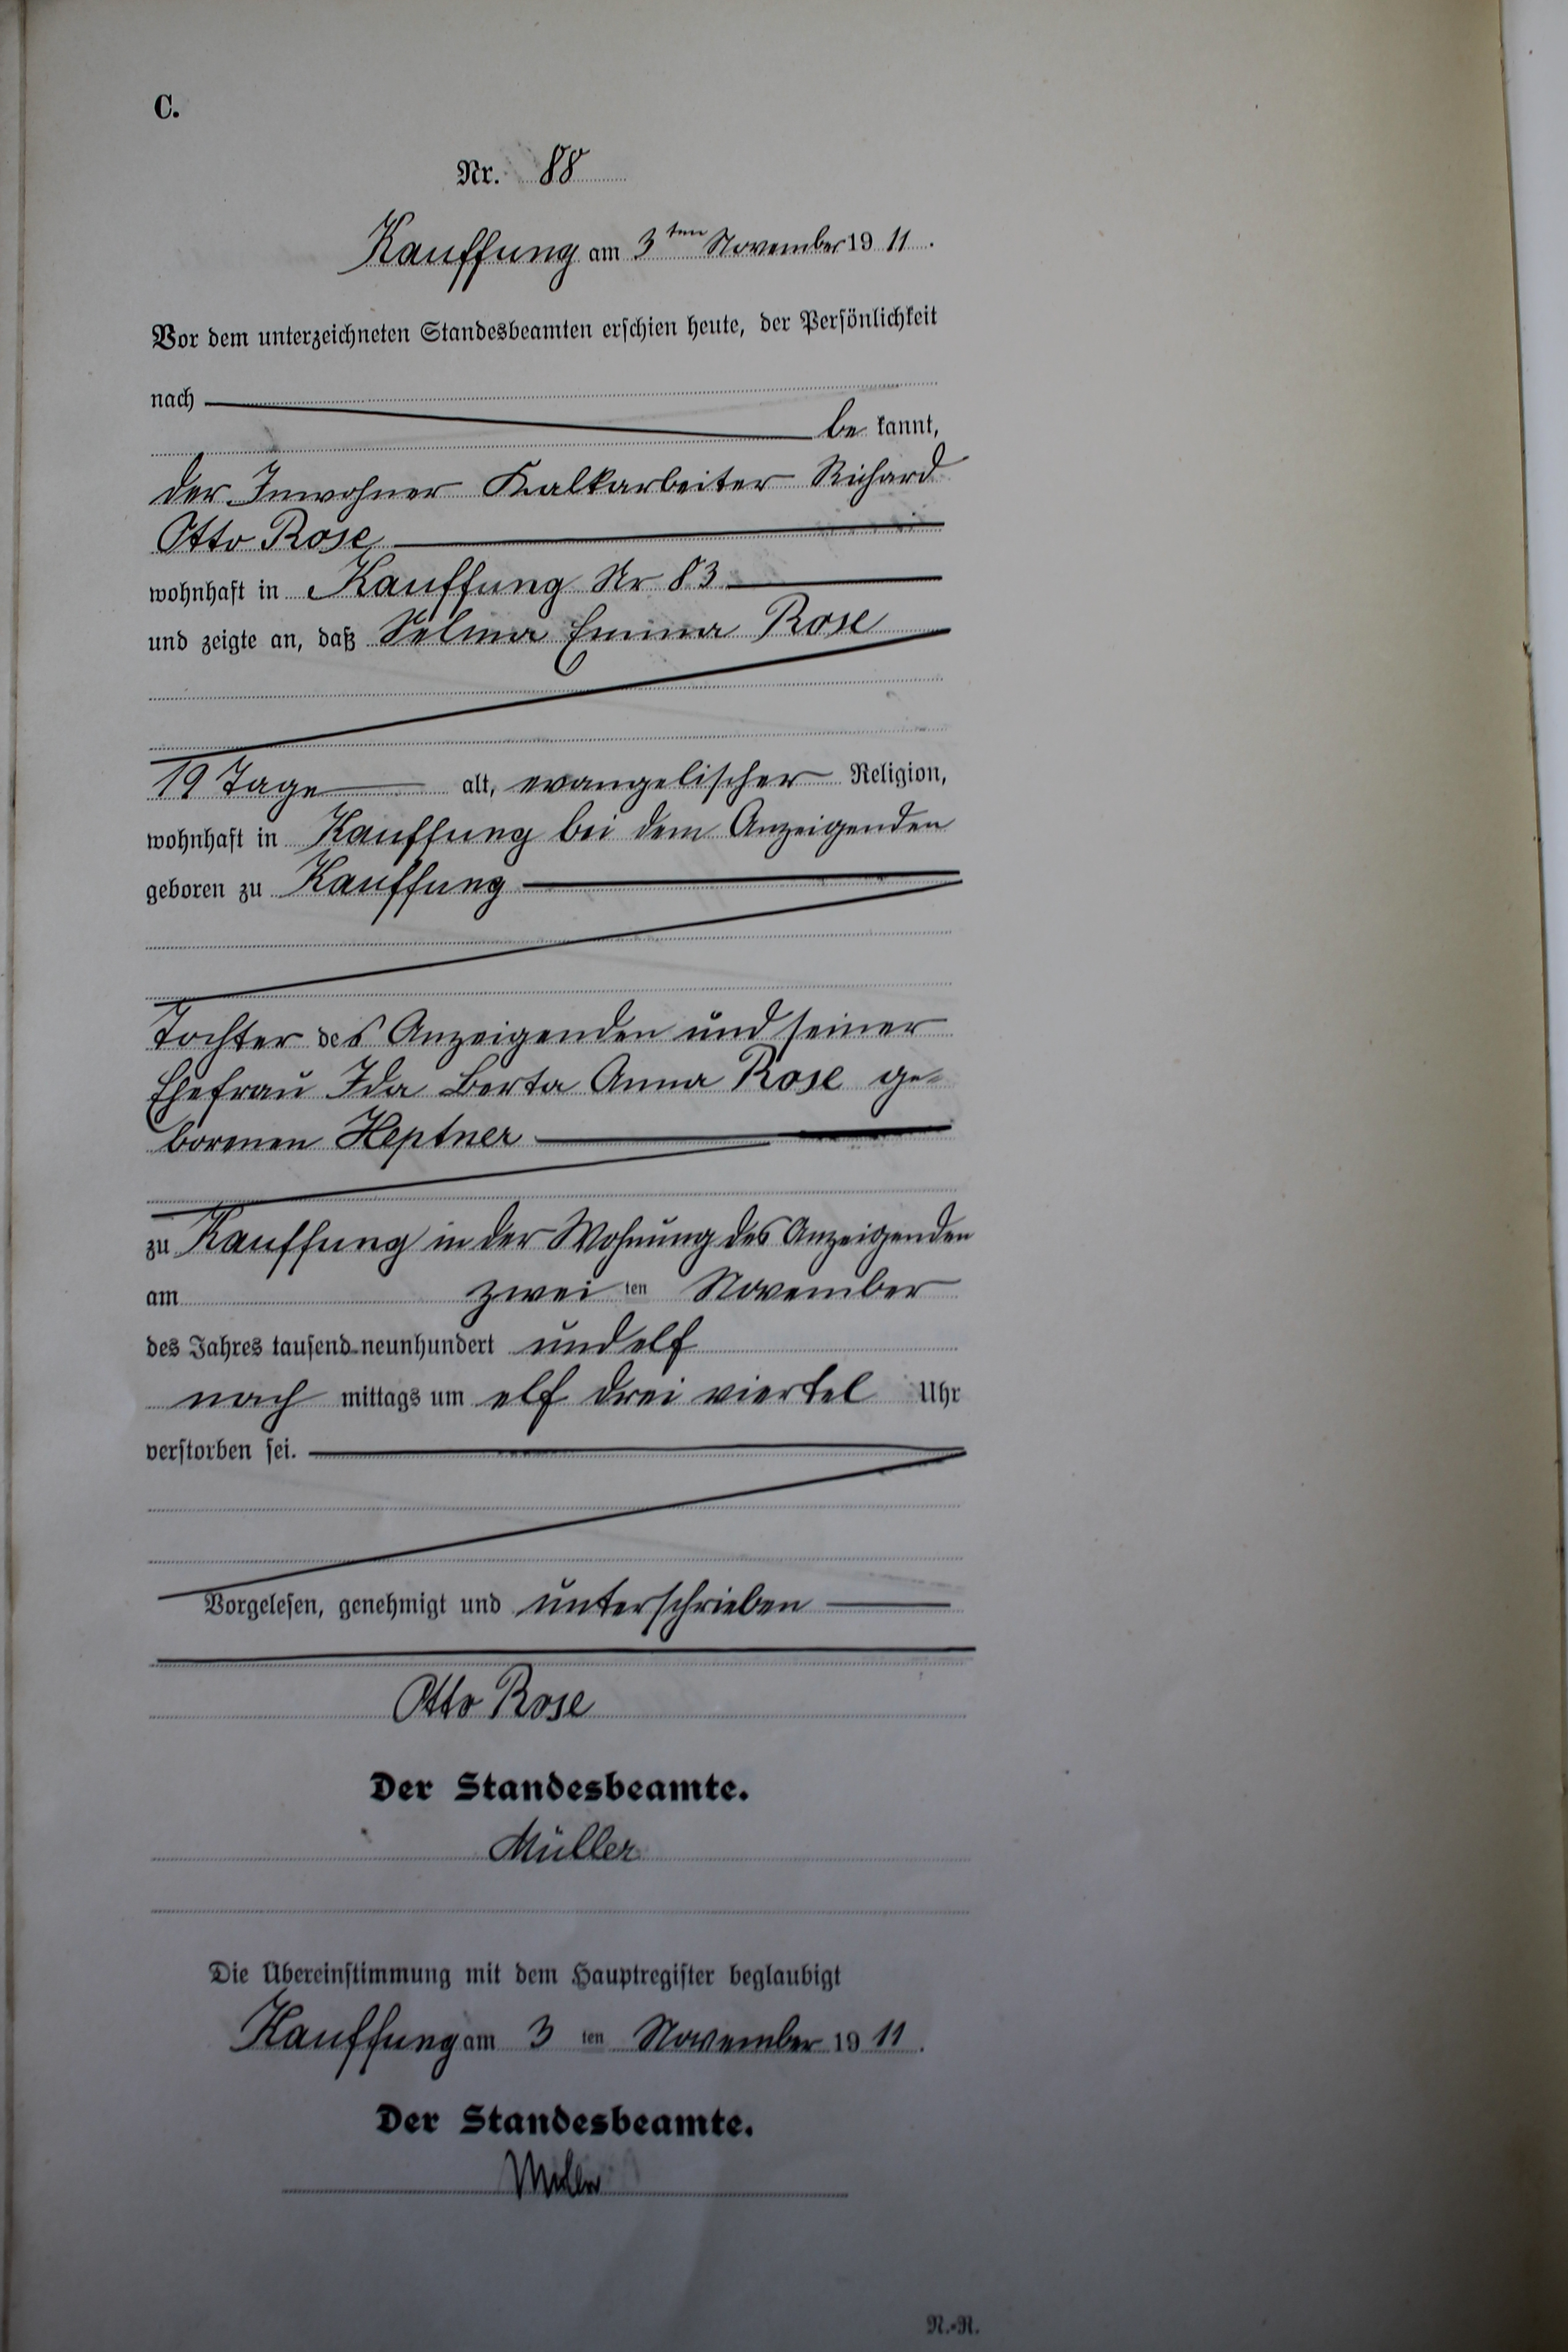 C.
Nr. 88
Kauffung am 3ten November 1911.
Vor dem unterzeichneten Standesbeamten erschien heute, der Persönlichkeit
nach
be kannt,
der Inwohner Kalkarbeiter Richard
Otto Rose
wohnhaft in Kauffung Nr 83
und zeigte an, daß Selma Emma Rose
19 Tage alt, evangelischer Religion,
wohnhaft in Kauffung bei dem Anzeigenden
geboren zu Kauffung
Tochter des Anzeigenden und seiner
Ehefrau Ida Berta Anna Rose ge-
borenen Heptner
zu Kauffung in der Wohnung des Anzeigenden
am zwei ten November
des Jahres tausend neunhundert und elf
nach mittags um elf drei viertel Uhr
verstorben sei.
Vorgelesen, genehmigt und unterschrieben
Otto Rose
Der Standesbeamte.
Müller
Die Übereinstimmung mit dem Hauptregister beglaubigt
Kauffung am 3 ten November 1911.
Der Standesbeamte.
Müller
N.-R.